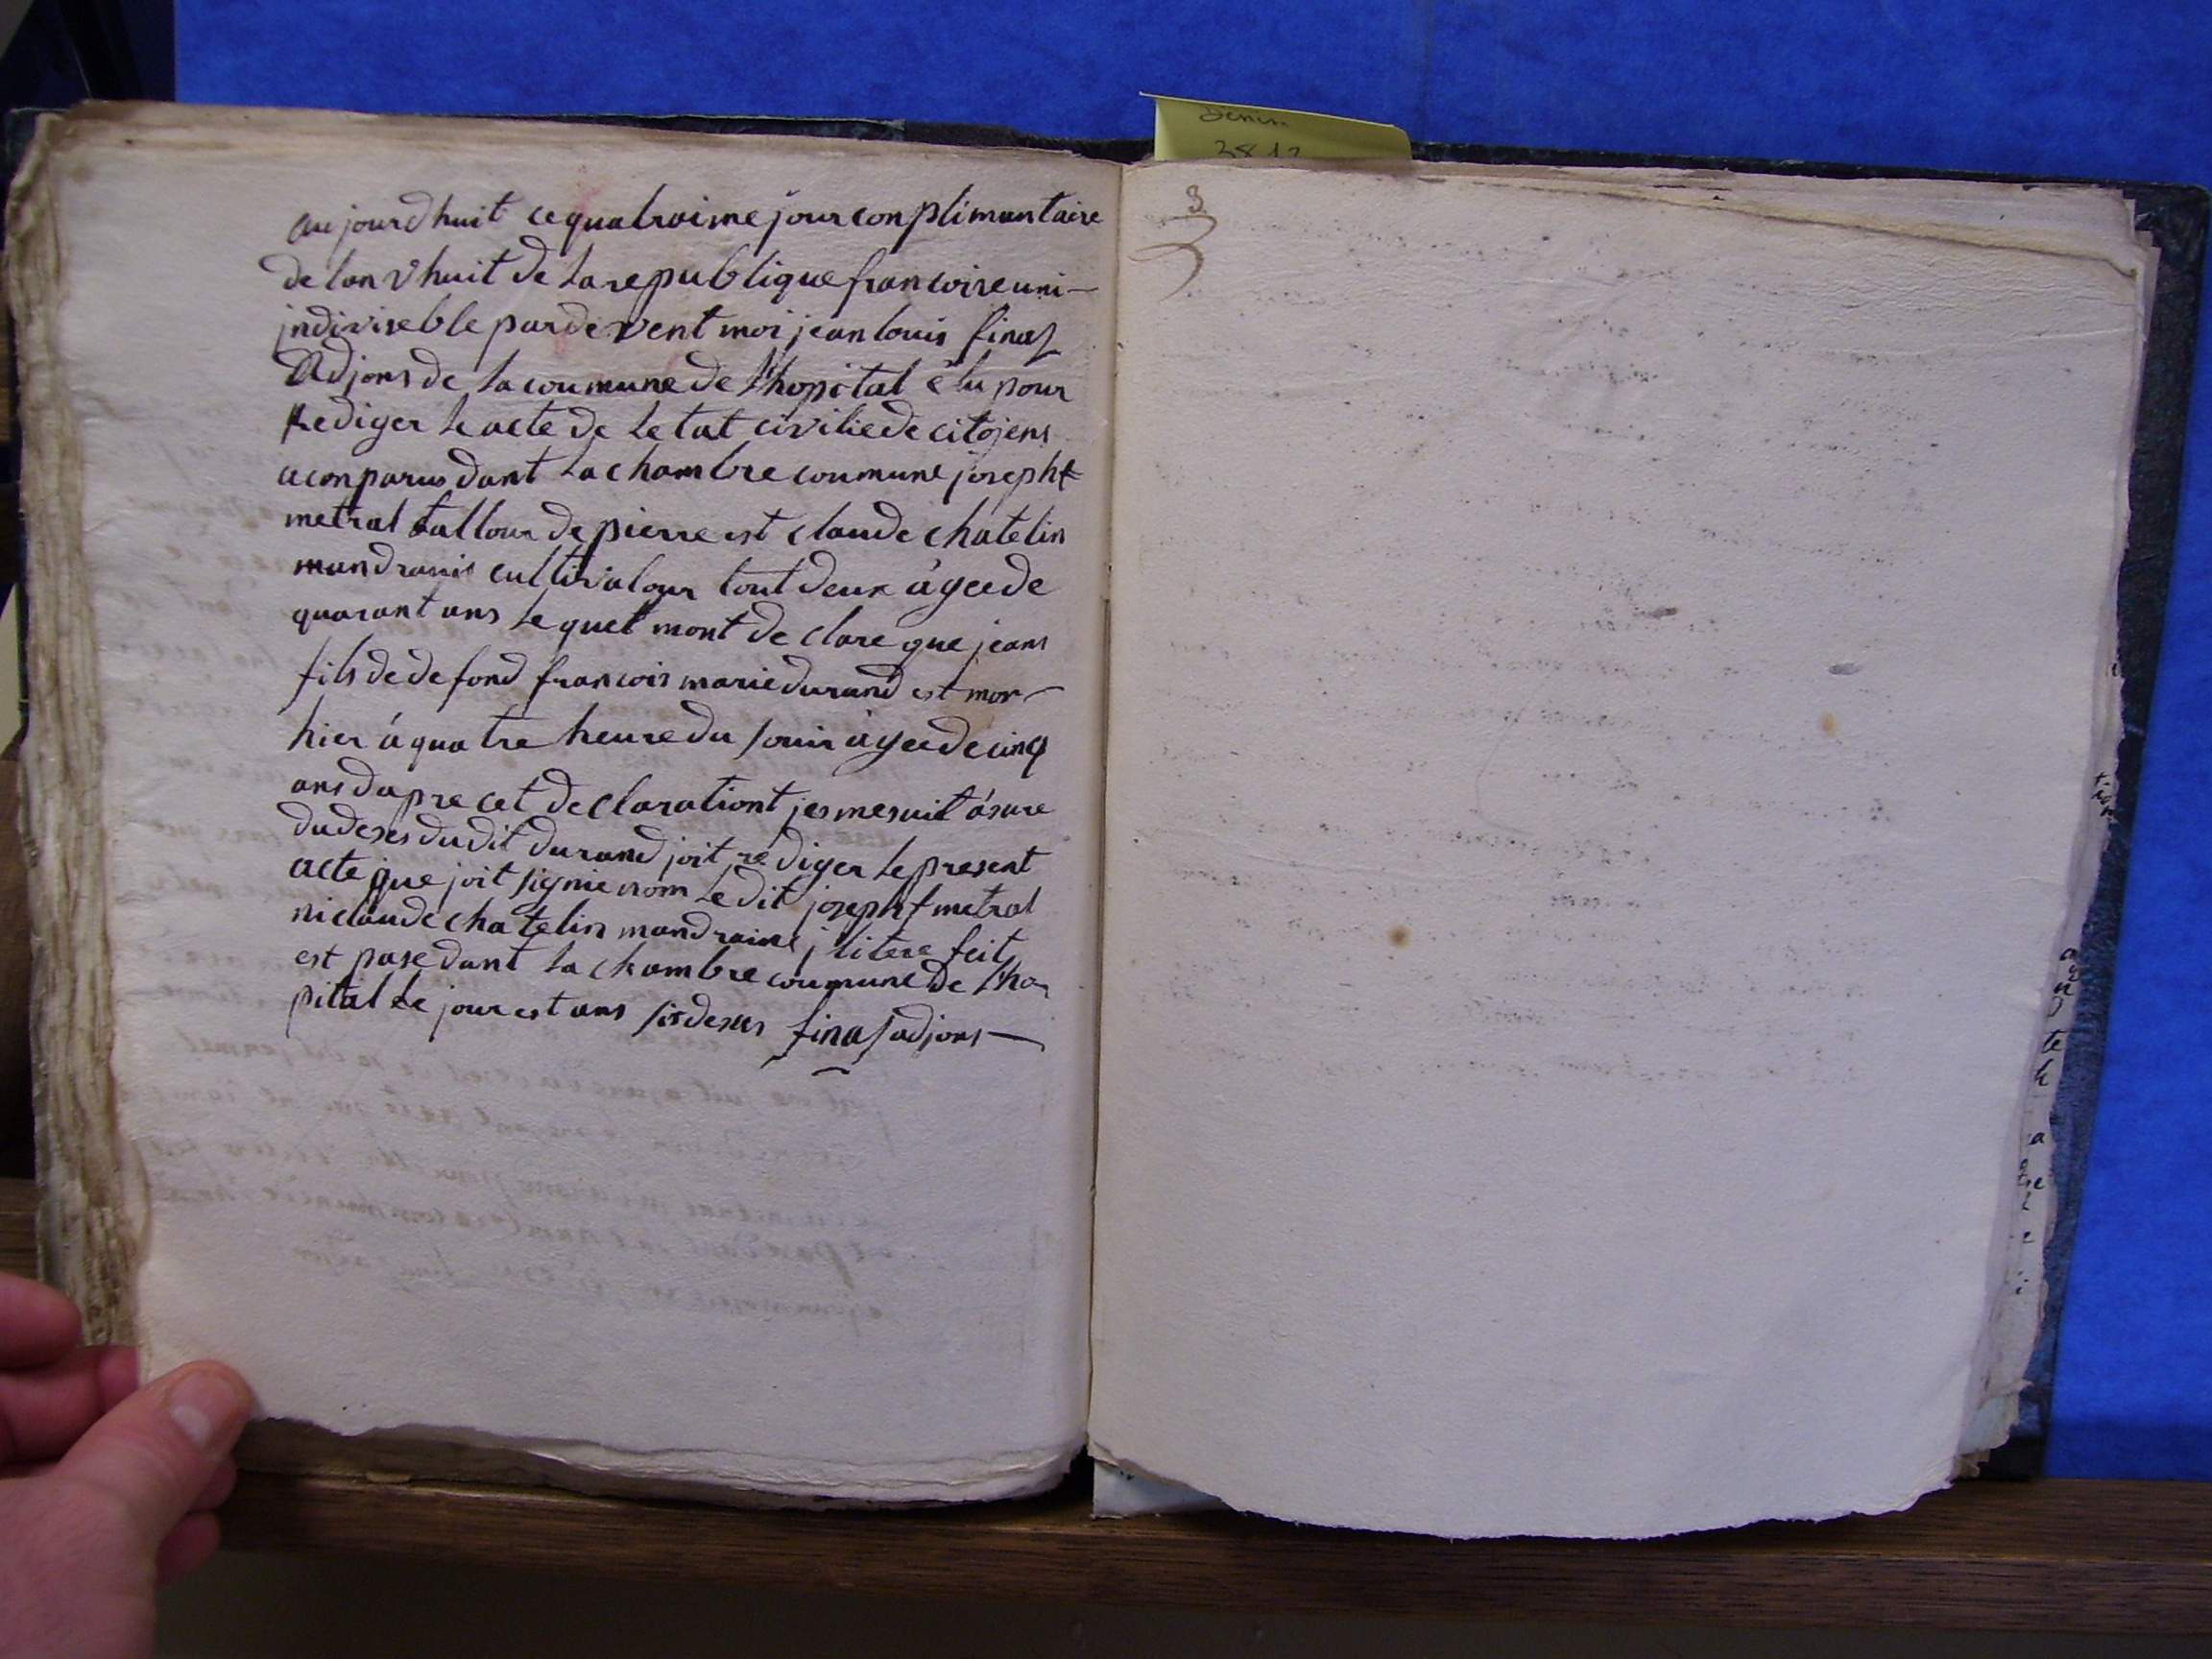 au jourdhuit ce quatroime jour conplimantaire
de lan v huit de la republique francoise uni
jndiviseble par devent moi jean louis finas
Adjons de la coumune de l'hopital élu pour
Rediger le acte de le tat civilie de citojens
a conparus dant la chambre coumune josepht
metral tallour de pierre est claude chatelin
mandrani cultivatour tout deux ágee de
quarant ans le quel mont de clare que jeans
fils de defond francois marie durand est mor
hier á quatre heure du souir ágee de cinq
ans dapre cet declarationt jes me suit ásure
du deses du dit durand joit rédiger le present
acte que joit signie nom le dit josepht metral
ni claude chatelin mandraine j litere feit
est pase dant la chambre coumune de l'ho
pital le jour est ans sisdesus finas adjons
3